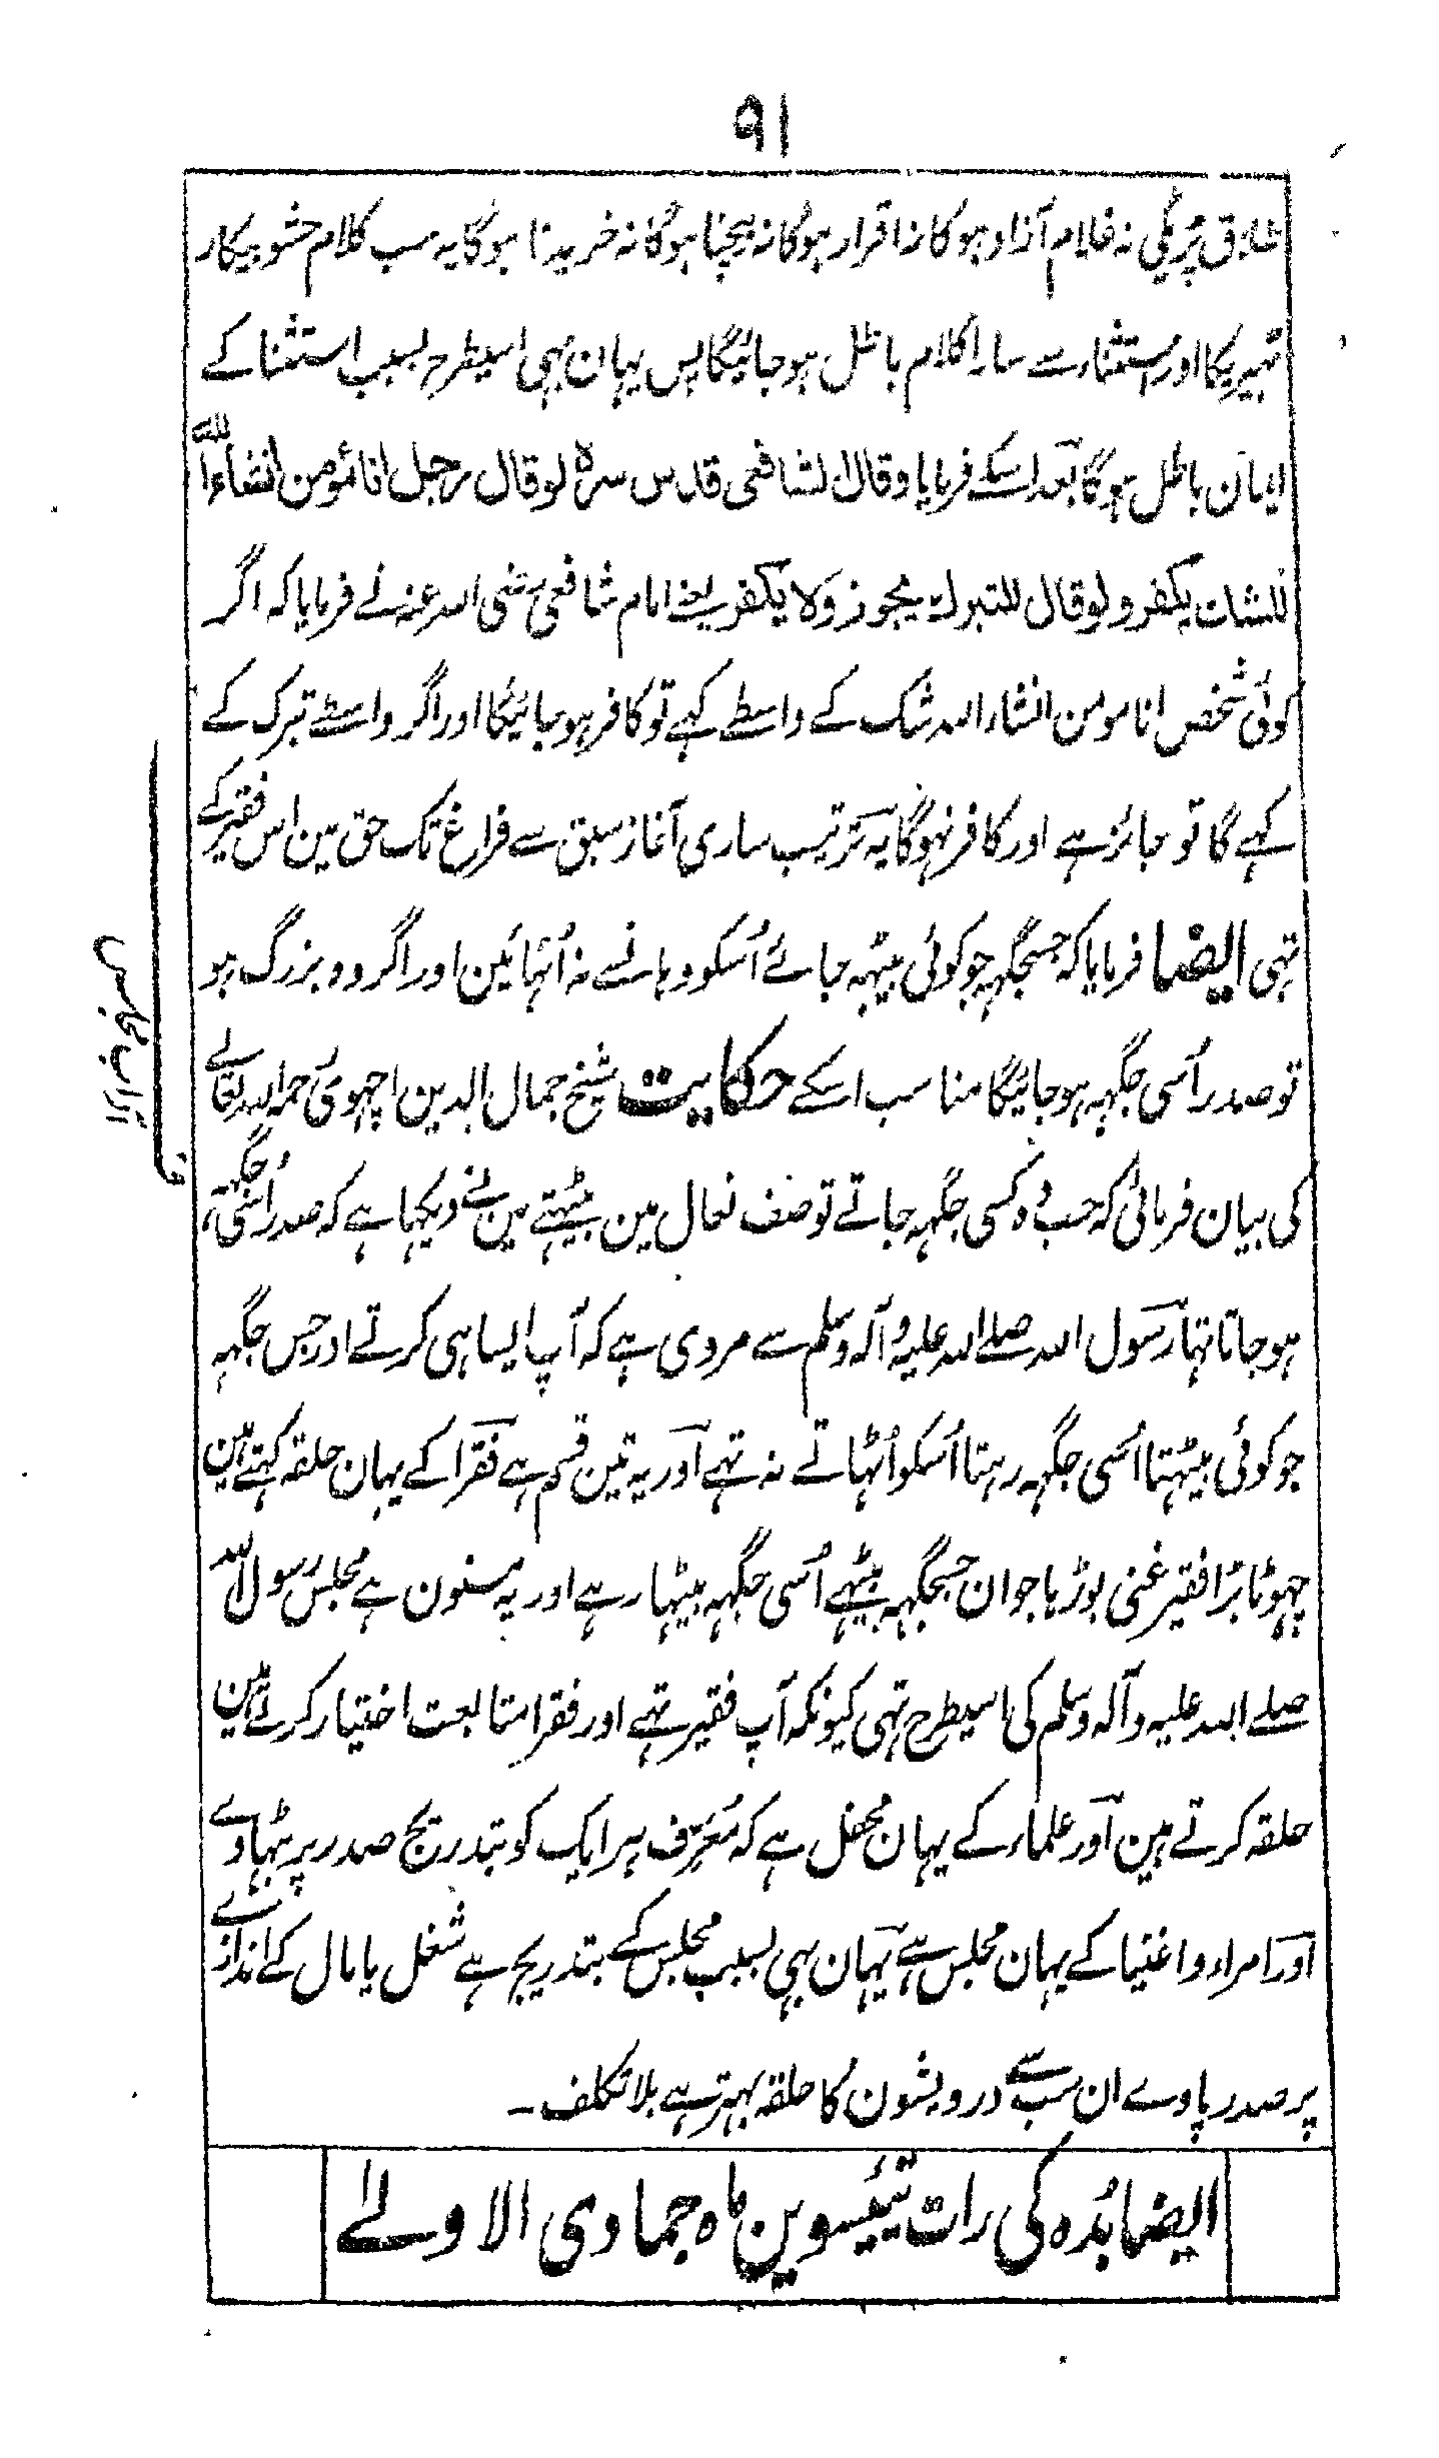 ۹۱
طلاق پڑیگی نہ غلام آزاد ہوگا نہ اقرار ہوگا نہ بیچنا ہوگا نہ خریدنا ہوگا یہ سب کلام حشو بیکار
ٹہیریگا اور استثناء سے سارا کلام باطل ہو جائیگا پس یہان بہی اسیطرح بسبب استثنا کے
ایمان باطل ہوگا بعد اسکے فرمایا وقال الشافعی قدس سرہ لو قال رجل انا مؤمن انشاء اللہ
للشک یکفر ولو قال للتبرک یجوز ولا یکفر یعنے امام شافعی رضی اللہ عنہ نے فرمایا کہ اگر
کوئی شخص انا مومن انشاء اللہ شک کے واسطے کہے تو کافر ہو جائیگا اور اگر واسطے تبرک کے
کہے گا تو جائز ہے اور کافر نہوگا یہ ترتیب ساری آغاز سبق سے فراغ تک حق مین اس فقیر کے
تہی ایضا فرمایا کہ جسجگہہ جو کوئی بیٹہہ جائے اُسکو وہانسے نہ اُٹہائین اور اگر وہ بزرگ ہو
تو صدر اُسی جگہہ ہو جائیگا مناسب اسکے حکایت شیخ جمال الدین اچہوی رحمہ اللہ تعالے
کی بیان فرمائی کہ جب وہ کسی جگہہ جاتے تو صف نعال مین بیٹہتے مین نے دیکہا ہے کہ صدر اُسی جگہہ
ہو جاتا تہا رسول اللہ صلے اللہ علیہ وآلہ وسلم سے مروی ہے کہ آپ ایسا ہی کرتے اور جس جگہہ
جو کوئی بیٹہتا اُسی جگہہ رہتا اُسکو اُٹہاتے نہ تہے اور یہ تین قسم ہے فقرا کے یہان حلقہ کہتے ہین
چہوٹا بڑا فقیر غنی بوڑہا جوان جسجگہہ بیٹہے اُسی جگہہ بیٹہا رہے اور یہ مسنون ہے مجلس رسول اللہ
صلے اللہ علیہ وآلہ وسلم کی اسیطرح تہی کیونکہ آپ فقیر تہے اور فقرا متابعت اختیار کرتے ہین
حلقہ کرتے ہین اور علماء کے یہان محفل ہے کہ مُعَرِّف ہر ایک کو بتدریج صدر پر بٹہاوے
اور امراء و اغنیا کے یہان مجلس ہے یہان بہی بسبب مجلس کے بتدریج ہے شغل یا مال کے اندازے
پر صدر پاوے ان سب سے درویشون کا حلقہ بہتر ہے بلا تکلف۔
ایضا بُدہ کی رات تیئیسوین ماہ جمادی الاولے